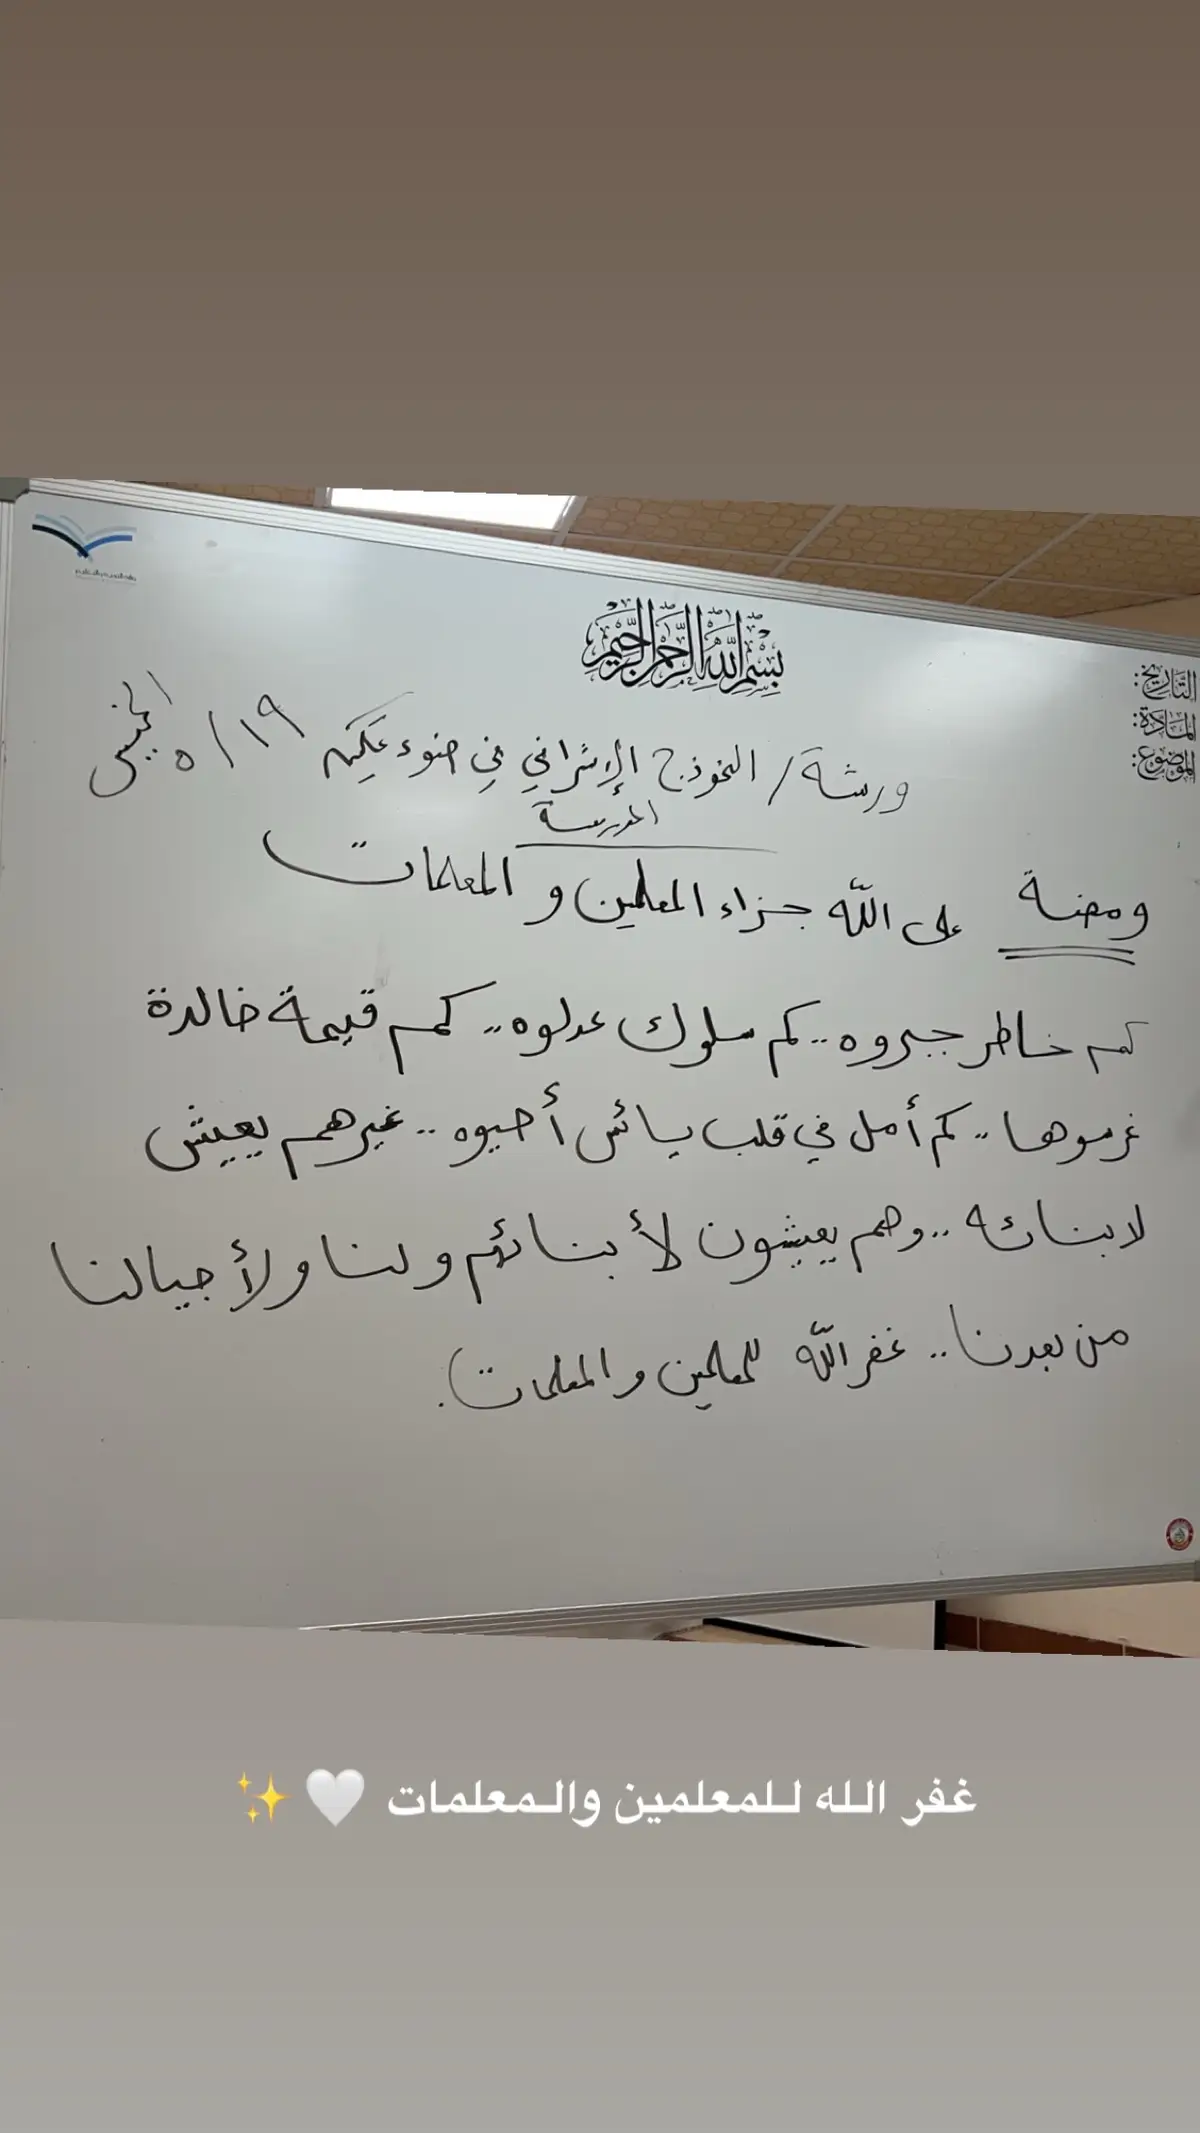 بسم الله الرحمن الرحيم
التاريخ:
المادة:
الموضوع:
الخميس ١٩/٥
ورشة / النموذج الإشرافي في ضوء تمكين
المدرسة
ومضة على الله جزاء المعلمين و المعلمات
كم خاطر جبروه .. كم سلوك عدلوه .. كم قيمة خالدة
غرسوها .. كم أمل في قلب يائس أحيوه .. غيرهم يعيش
لابنائه .. وهم يعيشون لأبنائهم ولنا ولأجيالنا
من بعدنا .. غفر الله للمعلمين و المعلمات).
غفر الله للمعلمين والمعلمات 🤍✨